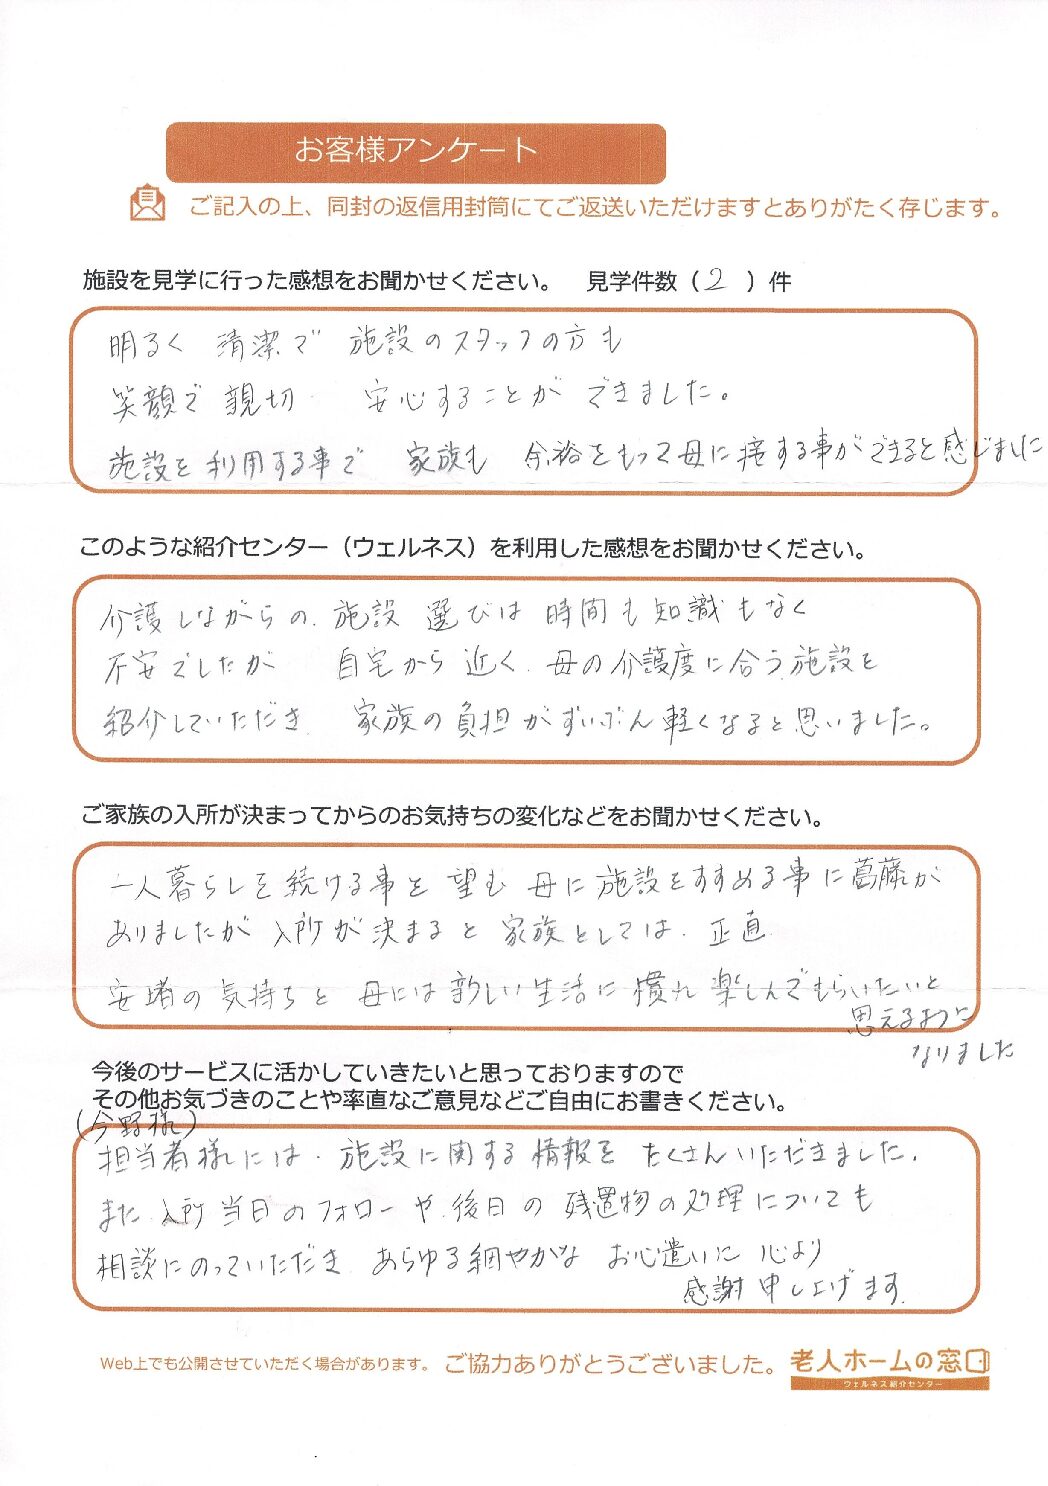 お客様アンケート
ご記入の上、同封の返信用封筒にてご返送いただけますとありがたく存じます。
施設を見学に行った感想をお聞かせください。 見学件数（ 2 ）件
明るく 清潔で 施設のスタッフの方も
笑顔で 親切 安心することが できました。
施設を利用する事で 家族も 余裕をもって母に接する事ができると感じました
このような紹介センター（ウェルネス）を利用した感想をお聞かせください。
介護しながらの、施設 選びは 時間も知識もなく
不安でしたが 自宅から近く、母の介護度に合う施設を
紹介していただき 家族の負担がずいぶん軽くなると思いました。
ご家族の入所が決まってからのお気持ちの変化などをお聞かせください。
一人暮らしを続ける事を望む 母に施設をすすめる事に葛藤が
ありましたが 入所が決まると家族としては、正直
安堵の気持ちと 母には新しい生活に慣れ 楽しんでもらいたいと
思えるように
なりました
今後のサービスに活かしていきたいと思っておりますので
その他お気づきのことや率直なご意見などご自由にお書きください。
(今野様)
担当者様には、施設に関する情報を たくさんいただきました。
また、入所当日のフォローや、後日の 残置物の処理についても
相談にのっていただき、あらゆる細やかな お心遣いに 心より
感謝申し上げます。
Web上でも公開させていただく場合があります。 ご協力ありがとうございました。 老人ホームの窓口
ウェルネス紹介センター